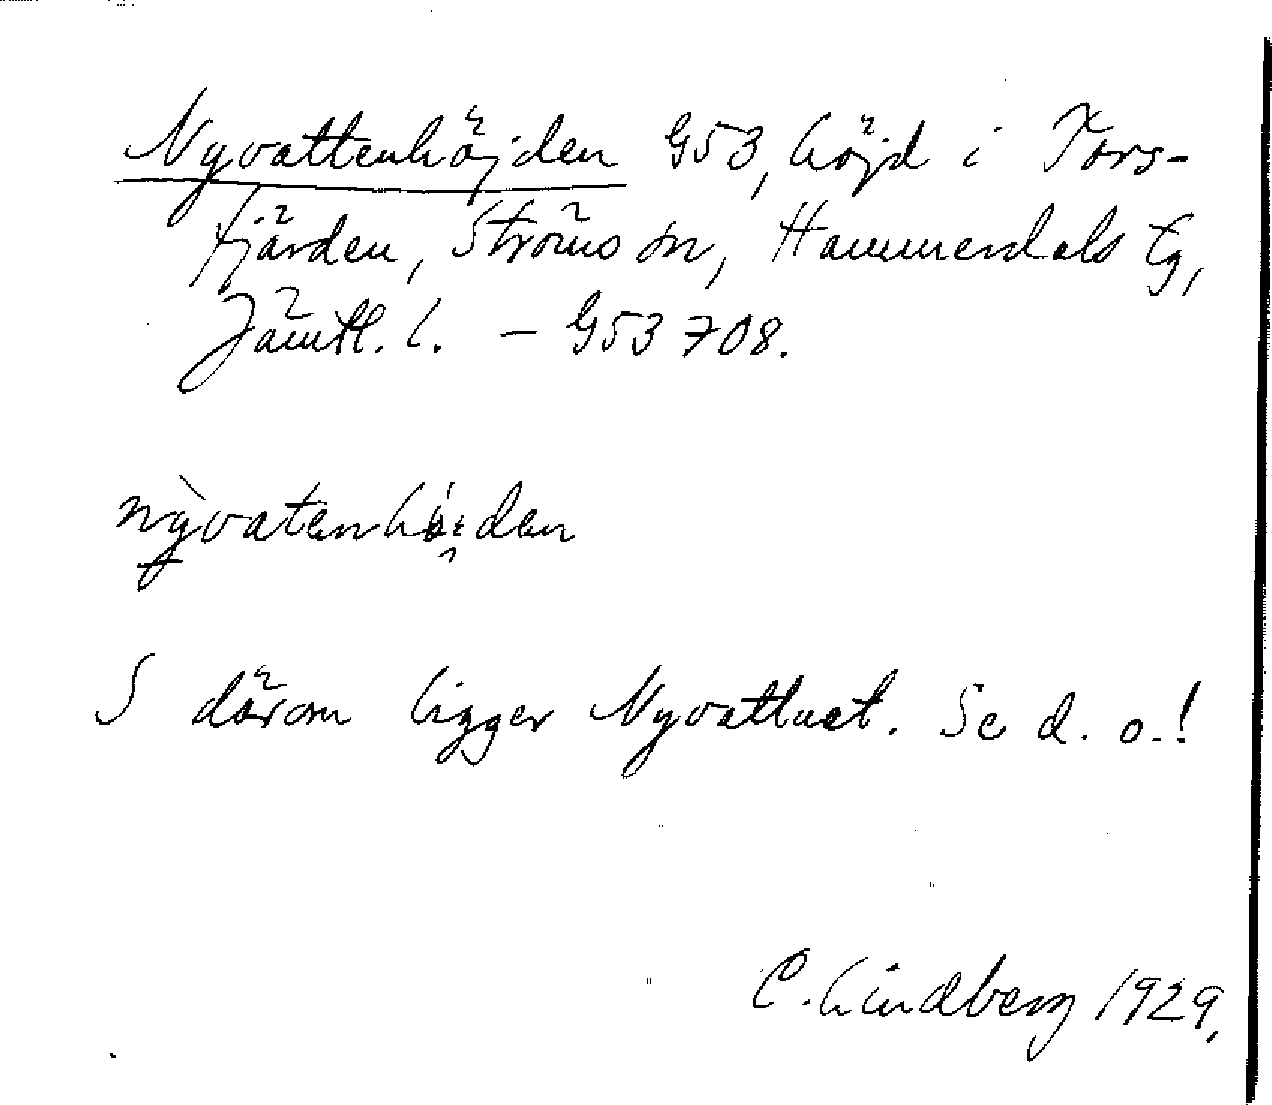 Nyvattenhöjden G53, höjd i Tors-
fjärden, Ströms sn, Hammerdals tg,
Jämtl. l. – G53 708.
nỳvatenhö́i̯den
S därom ligger Nyvattnet. Se d. o.!
C. Lindberg 1929.